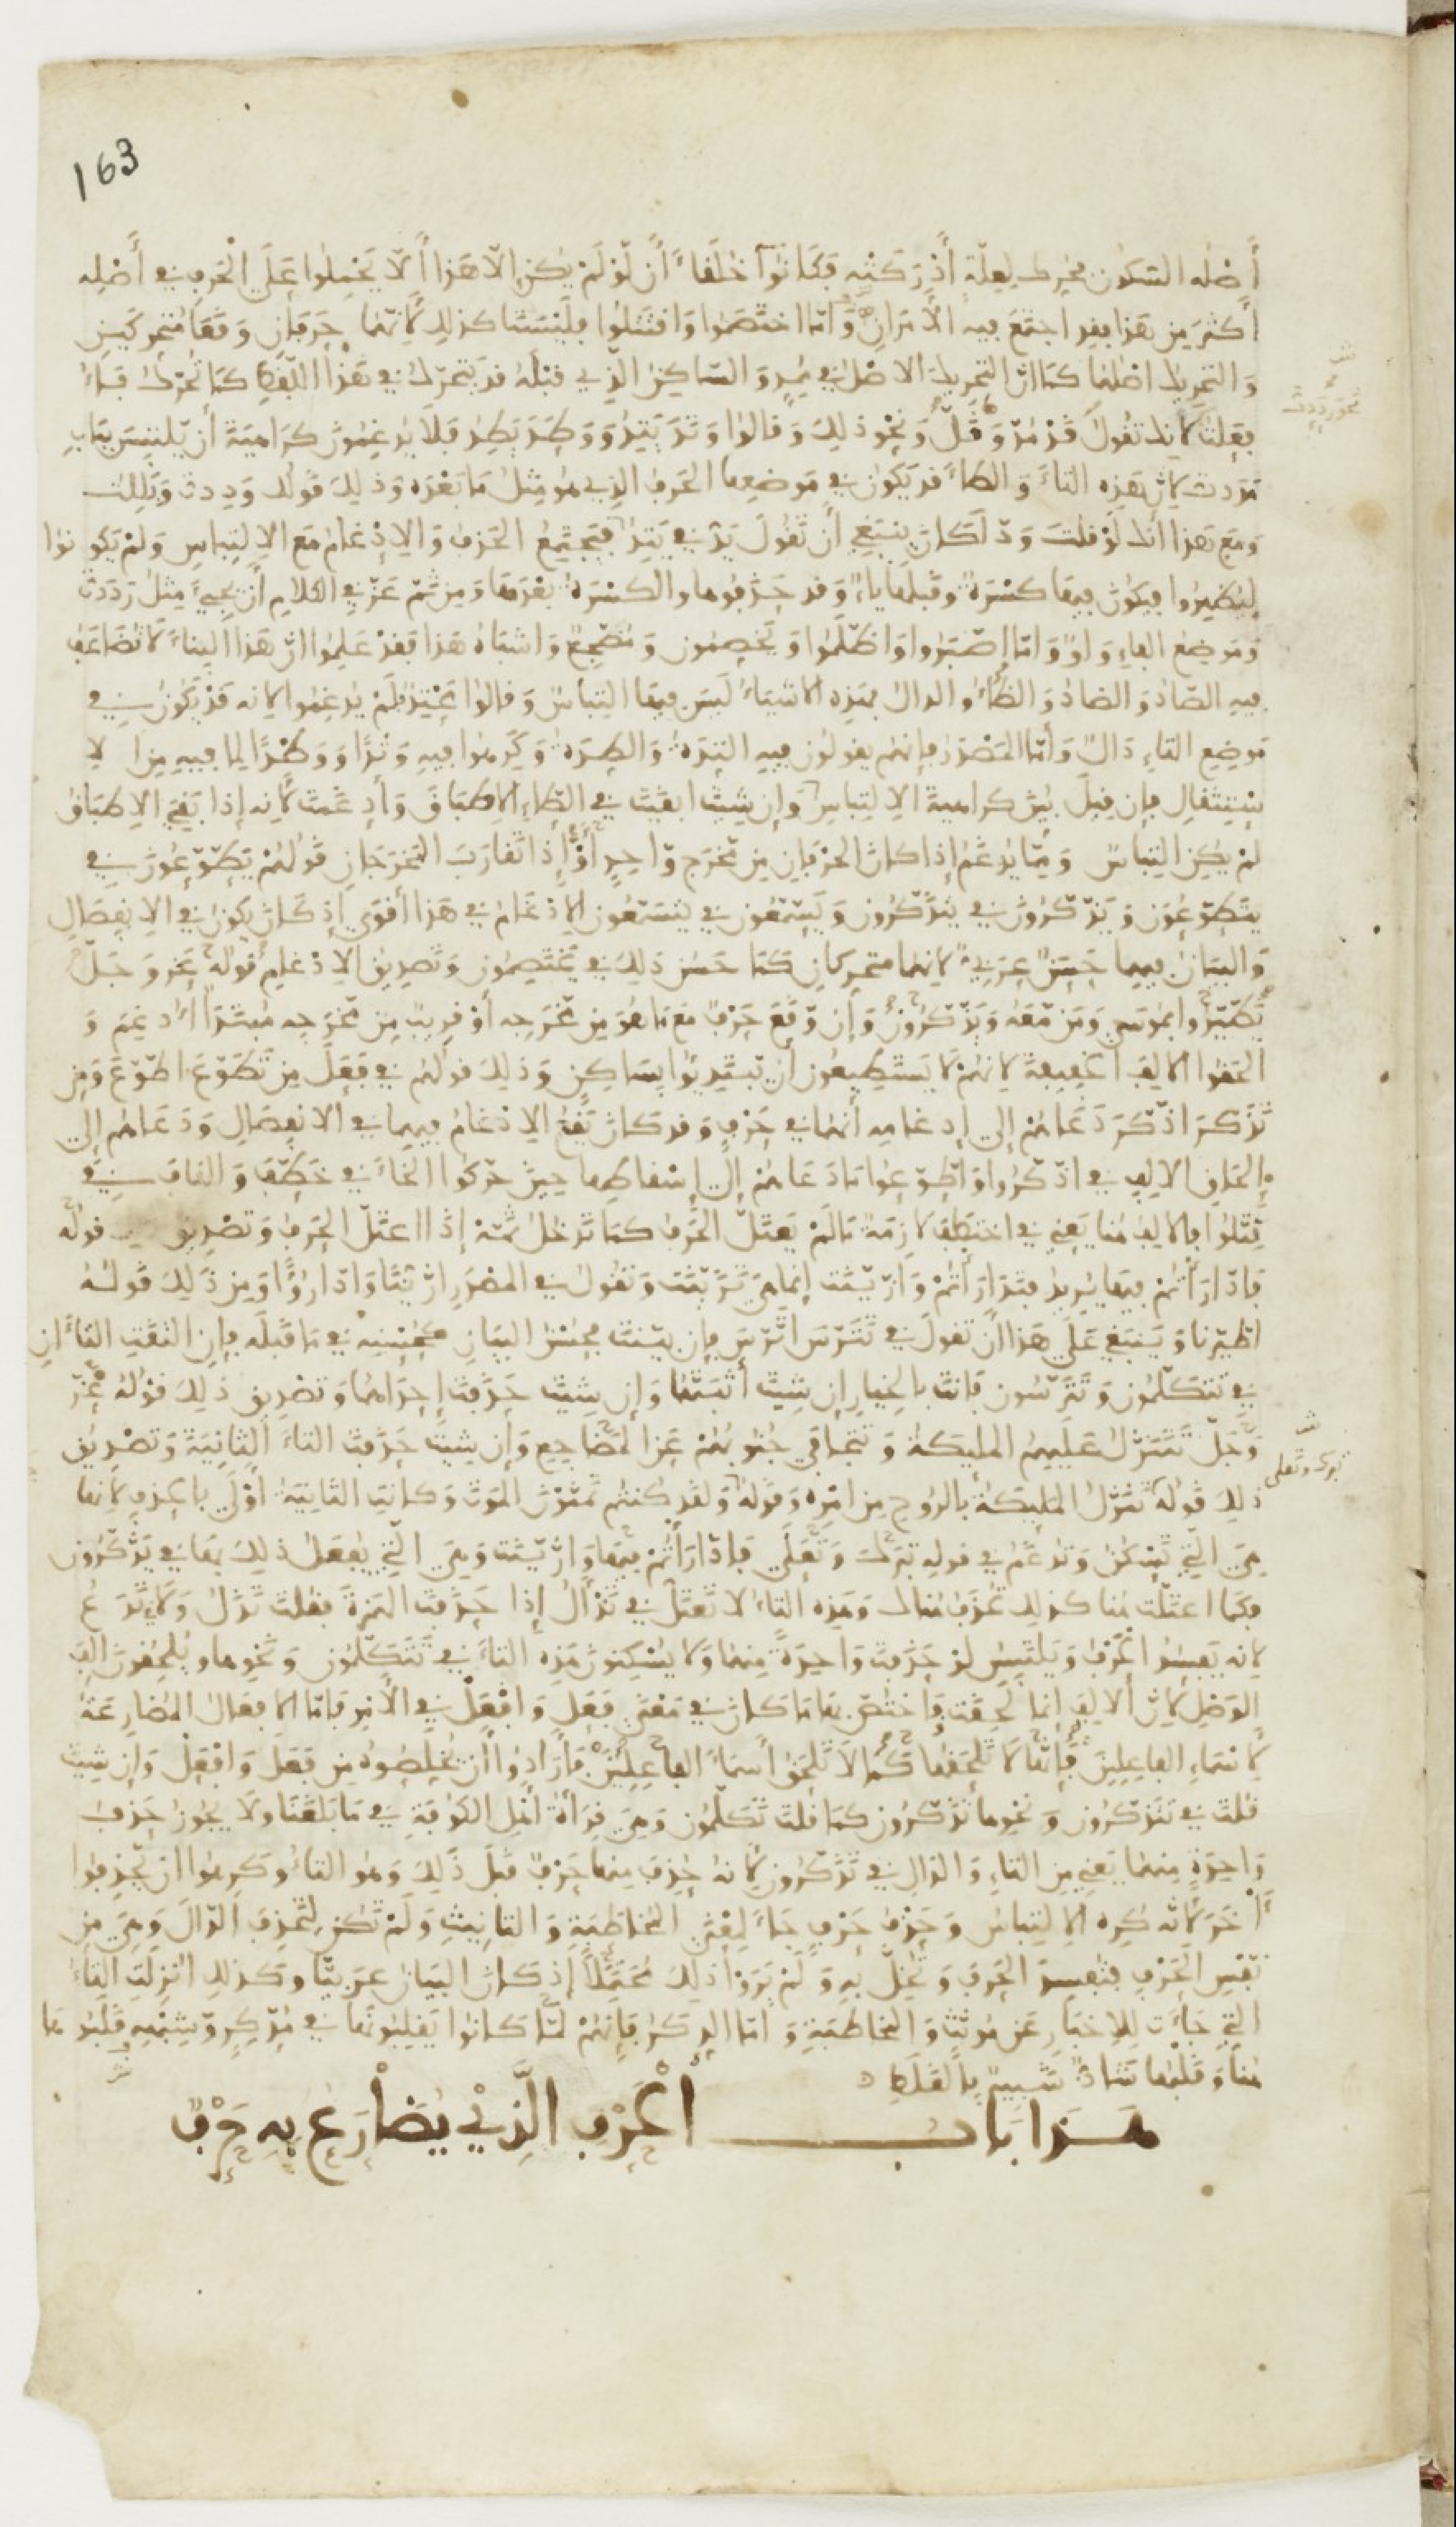 163
أَصْلُه السّكون محرك لِعِلّة أَدْرَكَتْه فكانوا خُلَفاءَ أن لَوْ لَمْ يكن إلّا هَذا أَلّا يَحْمِلوا عَلَى الْحَرف في أَصْلِه
أَكثرَ مِن هَذا فقد اجتمَعَ فيه الأمْرَانِ وَأمّا اختَصَموا وَاقتَتَلوا فلَيْسَتَا كذلك لأَنّهما حَرفانِ وَقَعَا مُتحركَينِ
وَالتحريك أصْلُهما كما أنّ التحريك الأصْل في مُمِدٍّ وَالسّاكنُ الّذي قبْلَه قد يَتحرّك في هَذا اللّفظِ كمَا تُحرّك فاءُ
فعِلت لأنك تقُولُ قدْ مُدّ وَقُلَّ وَنَحْو ذلِك وَقالوا وَتَدَ يَتِدُ وَوَطَدَ يَطِدُ فلَا يُدغِمُونَ كرَاهيَةَ أن يَلتَبِسَ ببَابِ
نحو رددت
مَدَدت لأنّ هَذِه التاءَ وَالطاءَ قد يَكونُ في مَوضِعِها الحَرفُ الذِي هُو مِثلُ مَا بَعْدَه وَذلِكَ قَولك وَدِدت وَبَلِلت
وَمَع هَذا أنك لَوْ قلتَ وَدّ لَكان ينبَغِي أن تَقُولَ يَدّ في يَتِدُ فيَجتَمِعُ الحَذفُ وَالإدْغامُ مَع الالتِباسِ وَلمْ يَكونوا
لِيُظهِرُوا فيَكونُ فيهَا كسْرَةٌ وقبلَها ياءٌ وَقد حَذَفوها والكسْرَةُ بعْدَها وَمِن ثمّ عَزّ في الكلامِ أن يَجِيءَ مِثلُ رَدَدت
وَمَوضِعُ الفاءِ وَاوٌ وَأمّا اصَّبَرُوا وَاظَّلَموا وَيَخصِمُون وَمُضَّجِعٌ وَاشبَاهُ هَذا فقدْ عَلِمُوا انّ هَذا البِناءَ لَا تضَاعَفُ
فيهِ الصّادُ وَالضادُ وَالظَّاءُ والدالُ فهَذِه الاشيَاءُ لَيسَ فيهَا التِباسٌ وَقالوا مَحْتِدٌ فلَمْ يُدغِمُوا لانه قدْ يَكُونُ في
مَوضِعِ التاءِ دَالٌ وَأمّا المَصْدَرُ فإنهم يقولون فيهِ التِدَةُ وَالطِدَةُ وَكَرِهوا فيهِ وَتْدًا وَوَطْدًا لِما فيهِ مِن الا
سْتِثقالِ فإن قِيلَ بُيّنَ كراهيةَ الالتِباسِ وَإن شِيتَ أبقَيتَ في الطّاءِ الإطبَاقَ وَأدغَمتَ لأنه إذا بَقِيَ الإطبَاقُ
لمْ يكنِ التِباسٌ وَممّا يُدغَمُ إذا كانَ الحَرْفانِ مِن مَخرَجٍ وّاحِدٍ أوْ إذَا تَقارَبَ المَخرَجَانِ قَولهُمْ يَطَّوَّعُونَ في
يتَطَوّعُونَ وَيَذَّكّرُونَ في يتَذكّرُون وَيَسَّمّعُون في يَتسَمّعُون الإدْغامُ في هَذا أقْوَى إذ كانَ يكونُ في الانفِصَالِ
وَالبَيَانُ فيهِما حَسَنٌ عَرَبيّ لأنهما متحركانِ كمَا حَسُنَ ذلِكَ في يَختصِمُون وَتَصدِيقُ الإدْغامِ قولُه عَزّ وَجَلّ
يَطَّيَّرُوا بمُوسَى وَمَن مّعَه وَيَذَّكّرُونَ وَإن وّقَعَ حَرفٌ مَع مَا هُوَ مِن مَخرَجِه أوْ قرِيبٌ مِن مَخرَجِه مُبتدَأً أُدغِمَ وَ
ألحَقوا الألِفَ الخفِيفةَ لأنهُمْ لَا يَستطِيعُون أن يَبتدِئُوا بسَاكِنٍ وَذلِكَ قولهُم في فَعَلَ مِن تَطَوّعَ اطَّوّعَ وَمِن
تَذَكرَ اذّكّرَ دَعَاهُمْ إلى إدغامِه أنهُما في حَرْفٍ وَقد كانَ يَقَعُ الإدغامُ فيهِما في الانفِصَالِ وَدَعَاهُم إلى
إلحَاقِ الألِفِ في اذّكّرُوا وَاطَّوّعُوا مَا دَعَاهُمْ إلى إسْقاطِها حِينَ حَرّكوا الخَاءَ في خَطّفَ وَالقافَ في
قِتّلُوا فالألِفُ هُنا يَعني في اختَطَفَ لازِمَةٌ مَا لَمْ يَعتَلّ الحَرفُ كمَا تَدخُلُ ثَمّةَ إذَا اعتَلّ الحَرفُ وَتَصْدِيق قولُه
فادّارَأتُمْ فيهَا يُرِيدُ فتَدارَأتُمْ وَازّيّنَت إنّما هِيَ تَزَيّنَت وَتَقُولُ في المَصْدَرِ ازّيُّنًا وَادّارُؤًا وَمِن ذَلِكَ قَولُهُ
اطّيّرنا وَيَنبَغِي عَلى هَذا أن تقولَ في تَتَرّسَ اتّرّسَ فإن بيّنتَ فحُسْنُ البيَانِ كحُسْنِه في مَا قَبلَه فإنِ التقَتِ التاءَانِ
في تتَكلّمُون وَتَتَرّسُون فأنتَ بالخِيارِ إن شِيتَ أثبَتّهُما وَإن شِيتَ حَذَفتَ إحدَاهُما وَتَصْدِيقُ ذلِكَ قوْلُهُ عَزّ
وَجَلّ تَتَنَزّلُ عَلَيهِمُ المليكةُ وَتَتَجافى جُنوبُهُمْ عَنِ المَضَاجِعِ وَإن شِيتَ حَذَفتَ التاءَ الثانِيَةَ وَتَصْدِيقُ
تبرك وتعلى
ذلِكَ قولُهُ تَنَزّلُ المليكةُ بالرُّوحِ مِن امْرِه وَقولُه وَلَقد كنتم تَمَنّوْنَ المَوتَ وَكانتِ الثانِيَةُ أوْلَى بالحَذفِ لأنها
هِيَ الّتي تَسْكنُ وَتُدغَمُ في قولِه تبَرَكَ وَتَعَلى فادّارَأتُمْ فيهَا وَازّيّنَت وَهِيَ الّتي يُفعَلُ ذلِكَ بهَا في يَذّكّرُون
فكمَا اعتَلّت هُنا كذلك تُحذَفُ هُناك وَهَذِه التاءُ لا تَعتَلّ في تَدْأَلُ إذَا حَذَفتَ الهَمزَةَ فقلتَ تَدَلُ وَلَا في تَدَعُ
لأنه يَفسُدُ الحَرْفُ وَيَلتَبِسُ لوْ حَذَفتَ وَاحِدَةً مِنهما وَلا يُسْكِنونَ هَذِه التاءَ في تَتَكلّمُون وَنَحْوِها وَيُلحِقونَ ألِفَ
الوَصْلِ لأنّ الألِفَ إنما لَحِقَت فاختُصّ بهَا مَا كانَ في مَعنَى فَعَلَ وَافْعَلْ في الأمْرِ فأمّا الأفعَالُ المُضَارِعَةُ
لأسْمَاءِ الفاعِلِينَ فإنّها لَا تَلحَقُها كَمَا لَا تَلحَقُ أسْمَاءَ الفاعِلِينَ فأرَادُوا أن يُخلِصُوه مِن فَعَلَ وَافْعَلْ وَإن شِيتَ
قلتَ في تَتَذكّرُون وَنَحْوِها تَذَكّرُون كمَا قلتَ تَكلّمُون وَهِيَ قِرَاءَةُ أهْلِ الكوفَةِ في مَا بَلَغَنَا وَلَا يَجُوزُ حَذفُ
وَاحِدَةٍ مِنهما يَعني مِن التاءِ وَالذالِ في تَذكّرُون لأنهُ حُذِفَ مِنها حَرْفٌ قَبلَ ذَلِكَ وَهُو التاءُ وَكرِهُوا ان يَحْذِفوا
آخَرَ لأنه كرِه الالتِباسَ وَحَذفَ حَرْفٍ جَاءَ لِمَعنَى المُخاطَبَةِ وَالتانِيثِ وَلَمْ تَكن لِتَحذِفَ الذّالَ وَهِيَ مِن
نَفْسِ الحَرْفِ فتُفسِدَ الحَرفَ وَتُخِلَّ بهِ وَلَمْ يَرَوْا ذلِكَ مُحتَمَلًا إذ كانَ البَيَانُ عَرَبِيًّا وكذلك انزِلَتِ التاءُ
التي جَاءَت لِلإخبَارِ عَن مُؤَنّثٍ وَالمخاطَبَةِ وَأمّا الدِّكَرُ فإنهُمْ لَمّا كانُوا يَقلِبُونَها في مُدّكِرٍ وّشِبْهِه قَلَبُوها
هُنا وَقَلْبُها شَاذٌّ شَبيهٌ بالغَلَطِ
هَذا بَابُ الْحَرْفِ الَّذِيْ يُضَاْرَعُ بِهِ حَرْفٌ